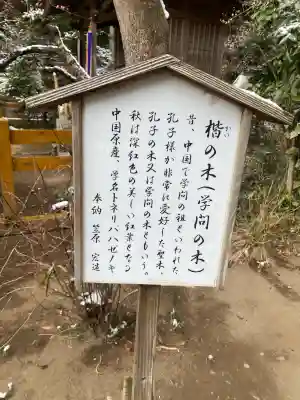 楷の木(学問の木)
かい
昔、中国で学問の祖といわれた
孔子様が非常に愛好した聖木、
孔子の木又は学問の木ともいう。
秋は深紅色の美しい紅葉となる
中国原産、学名トネリバハゼノキ
奉納 笠原 宏遠